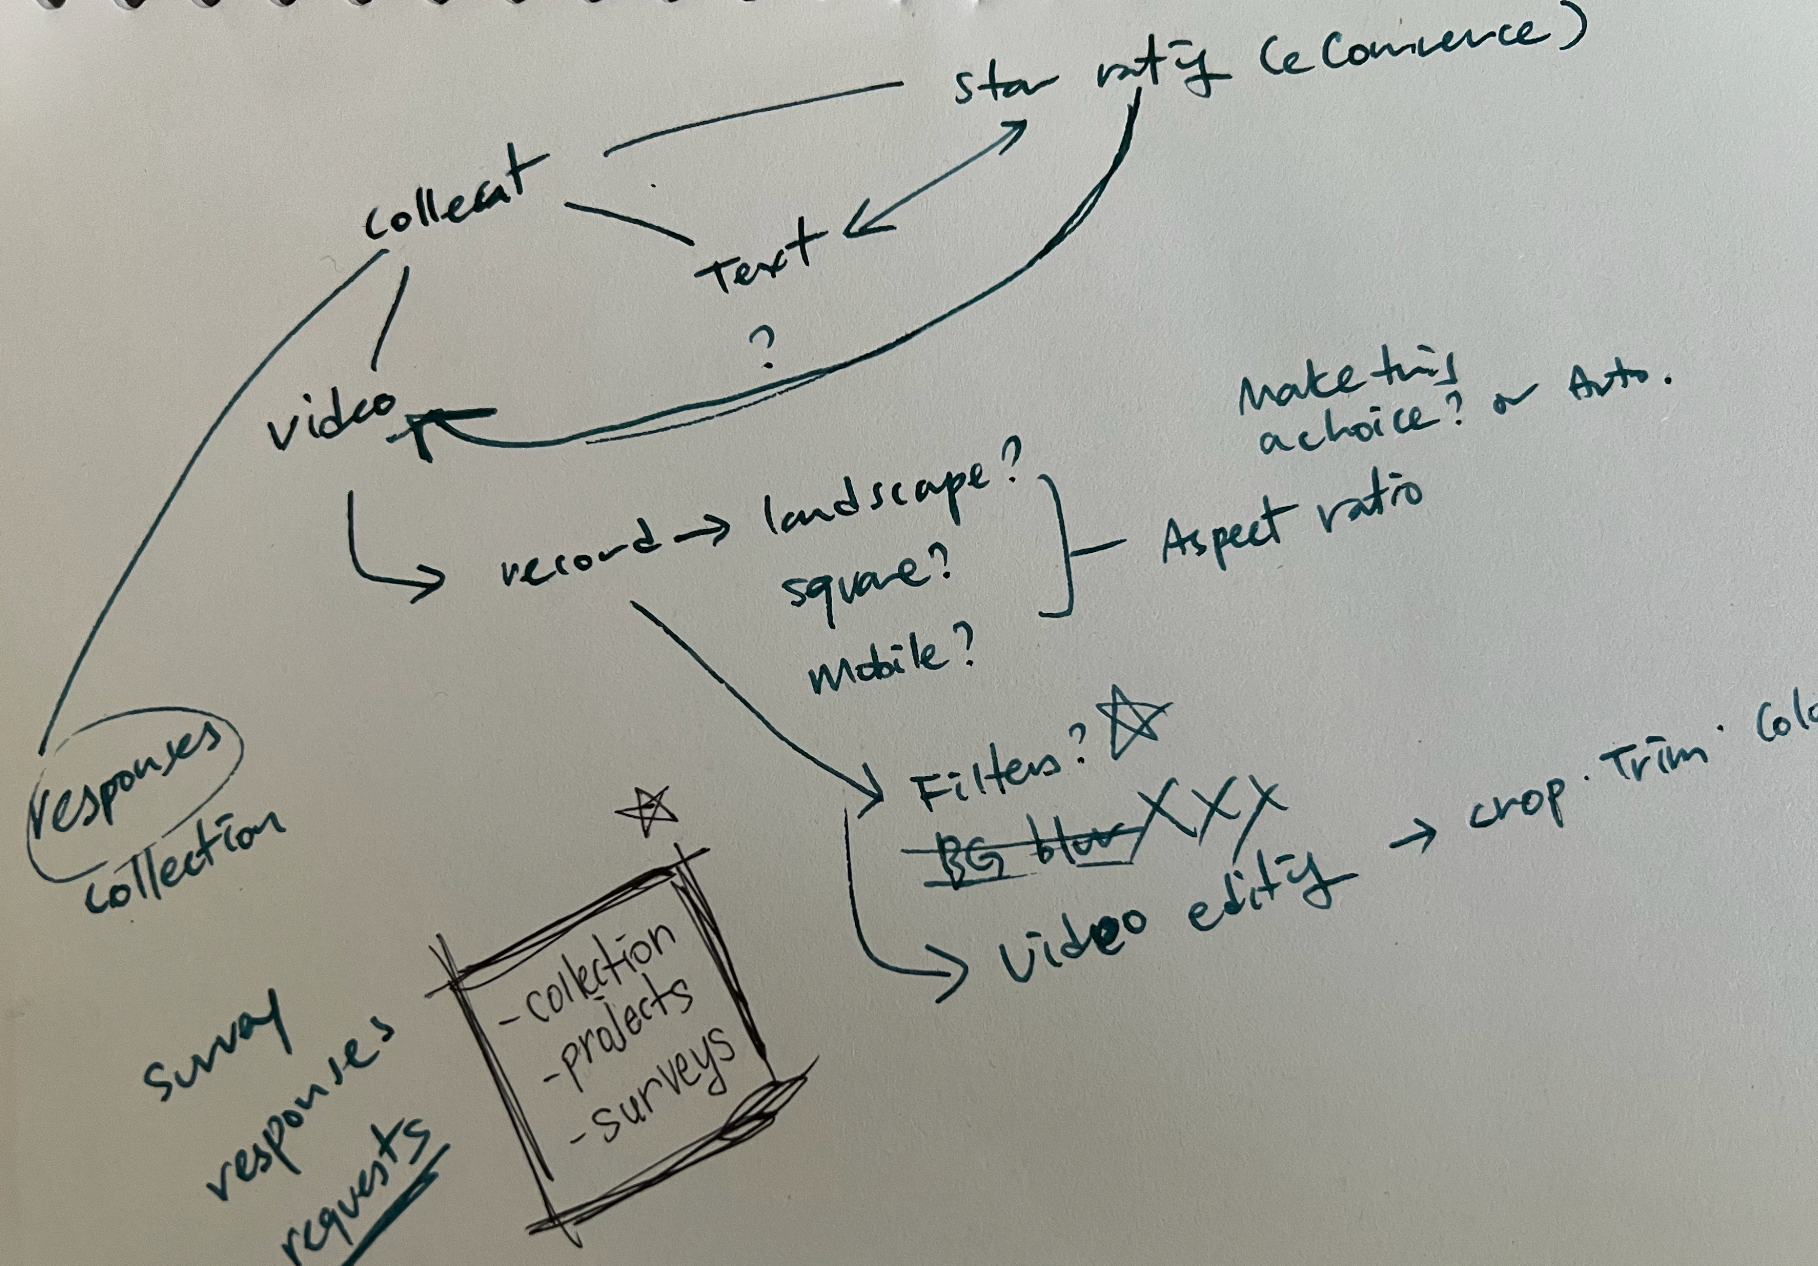 star rating (eCommerce)
collecat
Text
?
video
Make this
a choice? or Auto.
record → landscape?
square?
mobile?
Aspect ratio
responses
collection
Filters?
BG blur XXX
video editing → crop. Trim.
- collection
- projects
- surveys
survay
responses
requests